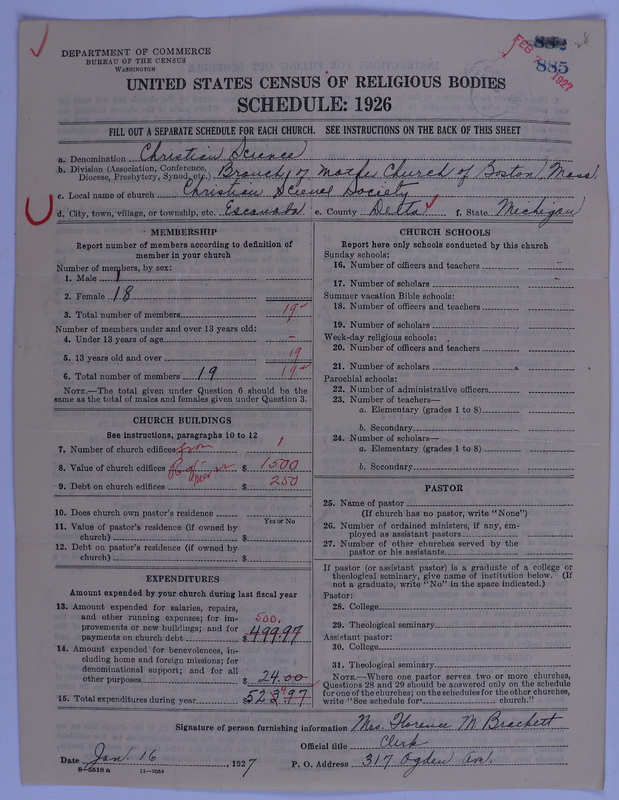 DEPARTMENT OF COMMERCE
BUREAU OF THE CENSUS
WASHINGTON
FEB 1927
885
28
UNITED STATES CENSUS OF RELIGIOUS BODIES
SCHEDULE: 1926
FILL OUT A SEPARATE SCHEDULE FOR EACH CHURCH. SEE INSTRUCTIONS ON THE BACK OF THIS SHEET
a. Denomination Christian Science
b. Division (Association, Conference, Diocese, Presbytery, Synod, etc.) Branch of Mother Church of Boston Mass
c. Local name of church Christian Science Society
d. City, town, village, or township, etc. Escanaba e. County Delta f. State Michigan
MEMBERSHIP
Report number of members according to definition of
member in your church
Number of members, by sex:
1. Male 1
2. Female 18
3. Total number of members 19
Number of members under and over 13 years old:
4. Under 13 years of age –
5. 13 years old and over 19
6. Total number of members 19 19
NOTE.—The total given under Question 6 should be the
same as the total of males and females given under Question 3.
CHURCH BUILDINGS
See instructions, paragraphs 10 to 12
7. Number of church edifices from 1
8. Value of church edifices $ 1500
9. Debt on church edifices $ 250
10. Does church own pastor's residence
Yes or No
11. Value of pastor's residence (if owned by
church) $
12. Debt on pastor's residence (if owned by
church) $
EXPENDITURES
Amount expended by your church during last fiscal year
13. Amount expended for salaries, repairs,
and other running expenses; for im- 500.
provements or new buildings; and for
payments on church debt $ 499.97
14. Amount expended for benevolences, in-
cluding home and foreign missions; for
denominational support; and for all
other purposes $ 24.00
15. Total expenditures during year $ 523.97
CHURCH SCHOOLS
Report here only schools conducted by this church
Sunday schools:
16. Number of officers and teachers –
17. Number of scholars –
Summer vacation Bible schools:
18. Number of officers and teachers
19. Number of scholars
Week-day religious schools:
20. Number of officers and teachers
21. Number of scholars
Parochial schools:
22. Number of administrative officers
23. Number of teachers—
a. Elementary (grades 1 to 8)
b. Secondary
24. Number of scholars—
a. Elementary (grades 1 to 8)
b. Secondary
PASTOR
25. Name of pastor
(If church has no pastor, write "None")
26. Number of ordained ministers, if any, em-
ployed as assistant pastors
27. Number of other churches served by the
pastor or his assistants
If pastor (or assistant pastor) is a graduate of a college or
theological seminary, give name of institution below. (If
not a graduate, write "No" in the space indicated.)
Pastor:
28. College
29. Theological seminary
Assistant pastor:
30. College
31. Theological seminary
NOTE.—Where one pastor serves two or more churches,
Questions 28 and 29 should be answered only on the schedule
for one of the churches; on the schedules for the other churches,
write "See schedule for church."
Signature of person furnishing information Mrs. Florence M. Brackett
Official title Clerk
Date Jan. 16, 1927 P. O. Address 317 Ogden Ave.
8—5518a 11—9054